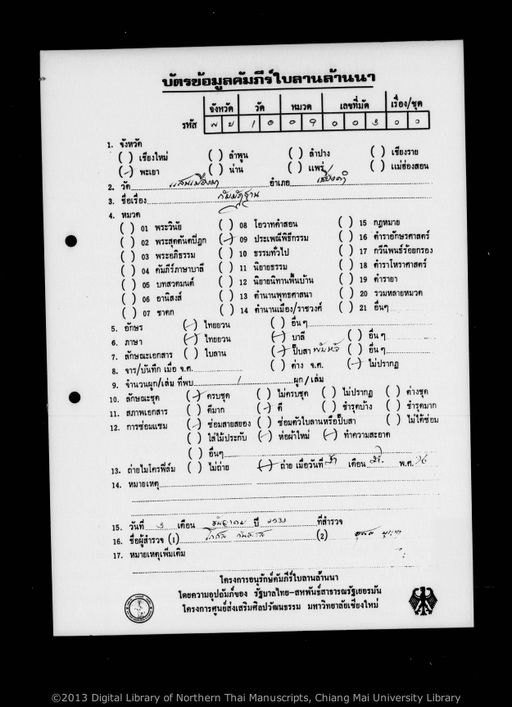 บัตรข้อมูลคัมภีร์ใบลานล้านนา
จังหวัด วัด หมวด เลขที่มัด เรื่อง/ชุด
รหัส พ ย ๑ ๐ ๐ ๙ ๐ ๐ ๓ ๐ ๐
1. จังหวัด
( ) เชียงใหม่ ( ) ลำพูน ( ) ลำปาง ( ) เชียงราย
(/) พะเยา ( ) น่าน ( ) แพร่ ( ) แม่ฮ่องสอน
2. วัด แสนเมืองมา อำเภอ เชียงคำ
3. ชื่อเรื่อง กัมมัฏฐาน
4. หมวด
( ) 01 พระวินัย ( ) 08 โอวาทคำสอน ( ) 15 กฎหมาย
( ) 02 พระสุตตันตปิฎก (/) 09 ประเพณีพิธีกรรม ( ) 16 ตำราอักษรศาสตร์
( ) 03 พระอภิธรรม ( ) 10 ธรรมทั่วไป ( ) 17 กวีนิพนธ์ร้อยกรอง
( ) 04 คัมภีร์ภาษาบาลี ( ) 11 นิยายธรรม ( ) 18 ตำราโหราศาสตร์
( ) 05 บทสวดมนต์ ( ) 12 นิยายนิทานพื้นบ้าน ( ) 19 ตำรายา
( ) 06 อานิสงส์ ( ) 13 ตำนานพุทธศาสนา ( ) 20 รวมหลายหมวด
( ) 07 ชาดก ( ) 14 ตำนานเมือง/ราชวงศ์ ( ) 21 อื่นๆ
5. อักษร (/) ไทยยวน ( ) อื่นๆ
6. ภาษา (/) ไทยยวน (/) บาลี ( ) อื่นๆ
7. ลักษณะเอกสาร ( ) ใบลาน (/) พับสา ( ) อื่นๆ
8. จาร/บันทึก เมื่อ จ.ศ. ( ) ค่าง จ.ศ. (/) ไม่ปรากฏ
9. จำนวนผูก/เล่ม ที่พบ 1 ผูก/เล่ม
10. ลักษณะชุด (/) ครบชุด ( ) ไม่ครบชุด ( ) ไม่ปรากฏ ( ) ต่างชุด
11. สภาพเอกสาร ( ) ดีมาก (/) ดี ( ) ชำรุดบ้าง ( ) ชำรุดมาก
12. การซ่อมแซม (/) ซ่อมสายสยอง ( ) ซ่อมตัวใบลานหรือปั๊บสา ( ) ไม่ได้ซ่อม
( ) ใส่ไม้ประกับ (/) ห่อผ้าใหม่ (/) ทำความสะอาด
( ) อื่นๆ
13. ถ่ายไมโครฟิล์ม ( ) ไม่ถ่าย (/) ถ่าย เมื่อวันที่ เดือน พ.ศ.
14. หมายเหตุ
15. วันที่ ๖ เดือน ธันวาคม ปี ๒๕๓๓ ที่สำรวจ
16. ชื่อผู้สำรวจ (1) (2)
17. หมายเหตุเพิ่มเติม
โครงการอนุรักษ์คัมภีร์ใบลานล้านนา
โดยความอุปถัมภ์ของ รัฐบาลไทย-สหพันธ์สาธารณรัฐเยอรมัน
โครงการศูนย์ส่งเสริมศิลปวัฒนธรรม มหาวิทยาลัยเชียงใหม่
©2013 Digital Library of Northern Thai Manuscripts, Chiang Mai University Library